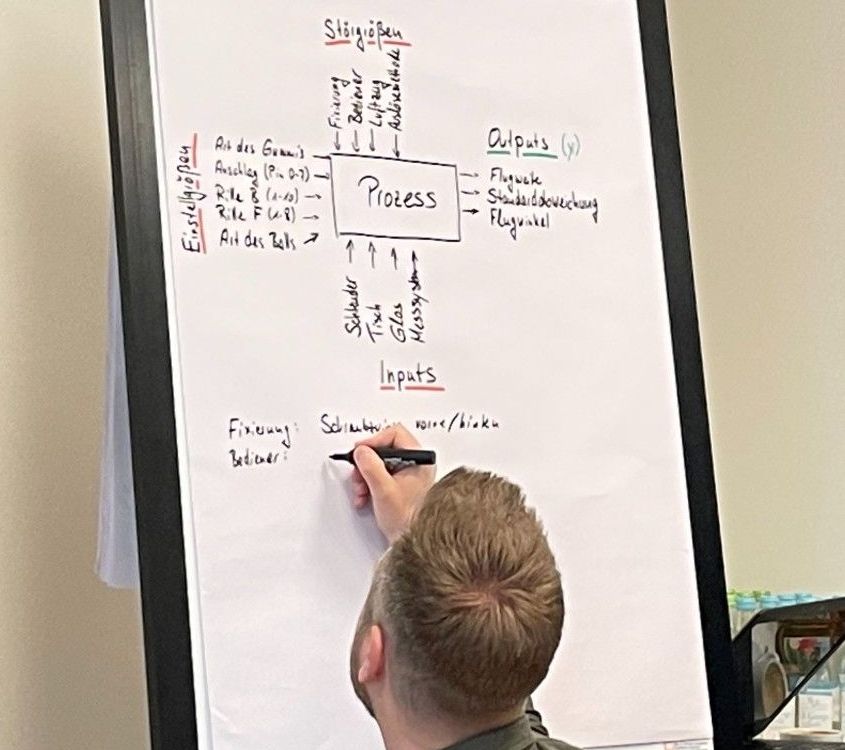 Störgrößen
Fixierung
Bediener
Luftzug
Auslösemethode
Einstellgrößen
Art des Gummis
Anschlag (Pin 0-7)
Rille B (1-10)
Rille F (1-8)
Art des Balls
Prozess
Outputs (y)
Flugweite
Standardabweichung
Flugwinkel
Schleuder
Tisch
Glas
Messsystem
Inputs
Fixierung: vorne/hinten
Bediener: